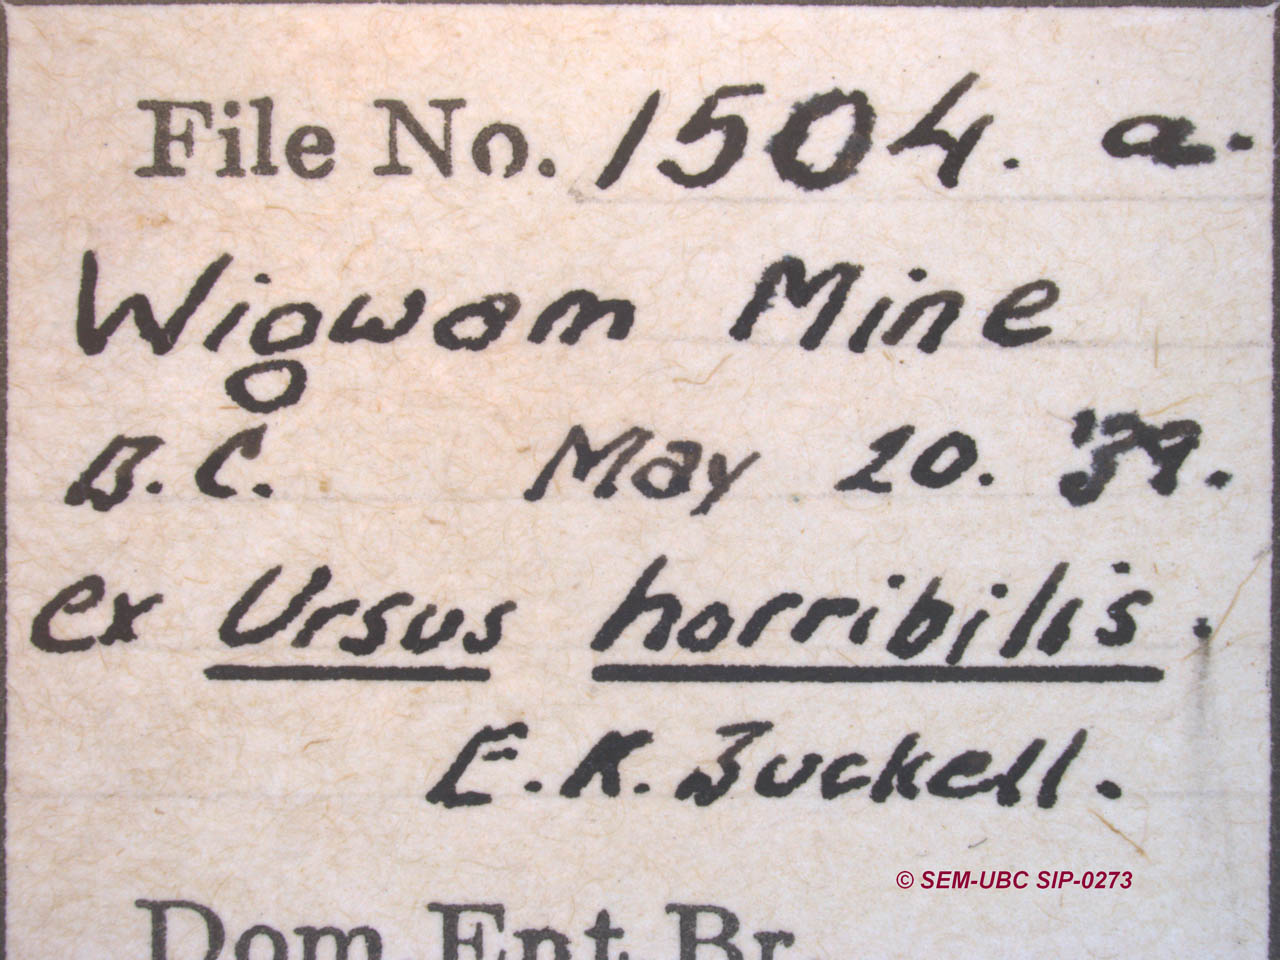 File No. 1504. a.
Wigwam Mine
B.C. May 20. '39.
ex Ursus horribilis.
E.K. Buckell.
© SEM-UBC SIP-0273
Dom. Ent. Br.